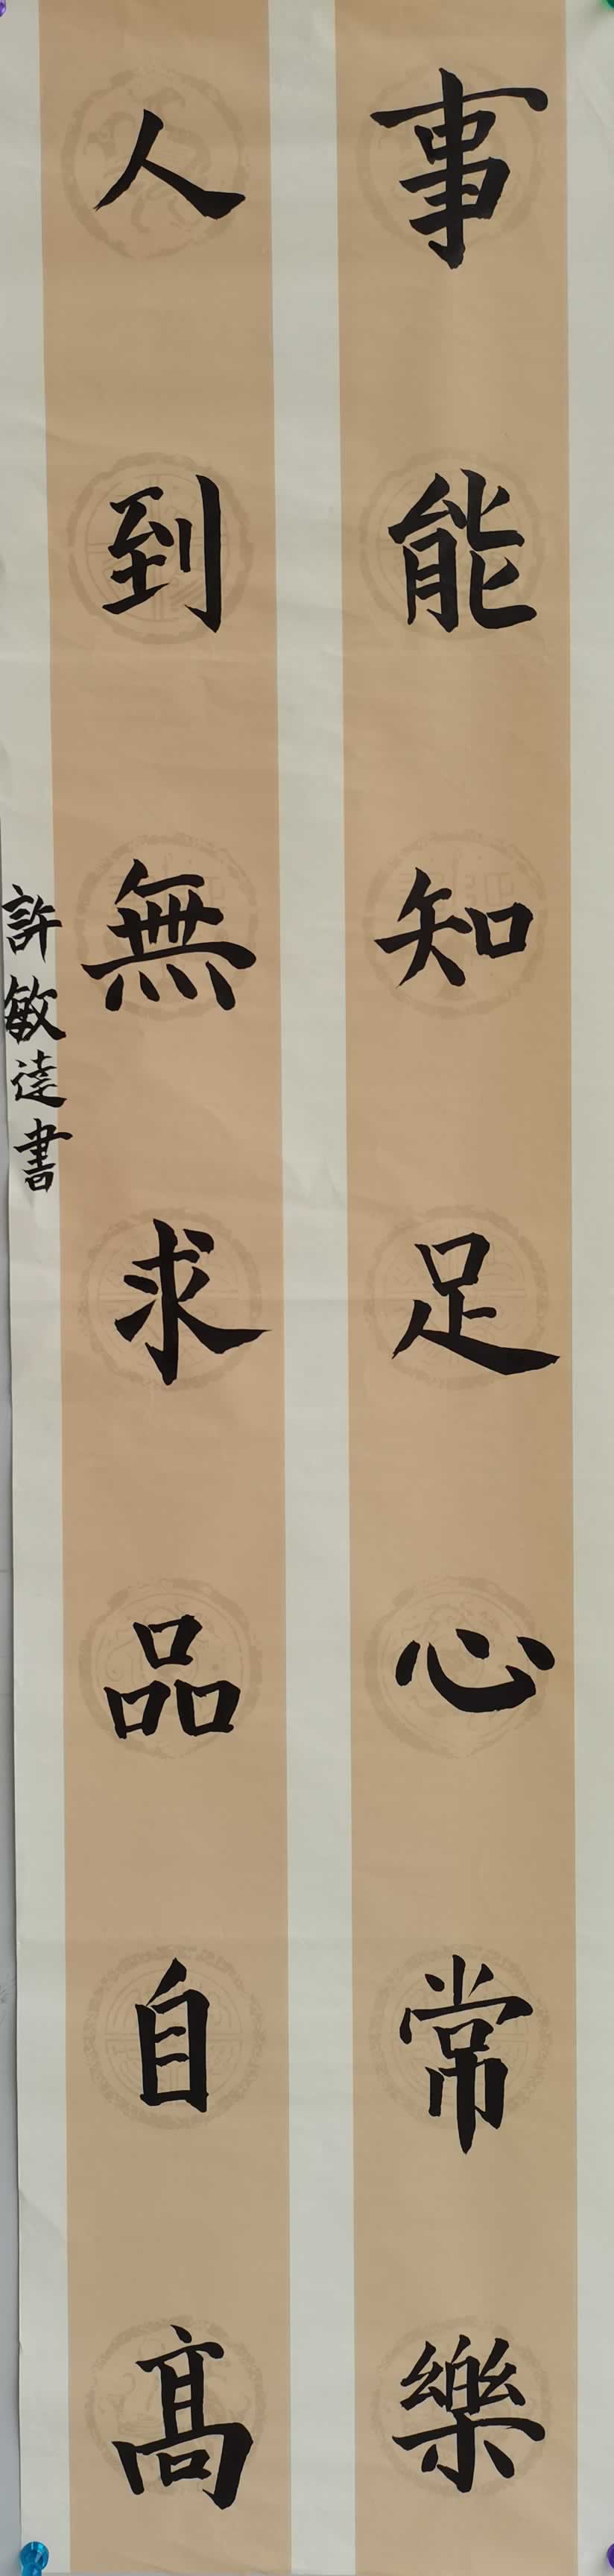 事能知足心常樂
人到無求品自高
許敏達書